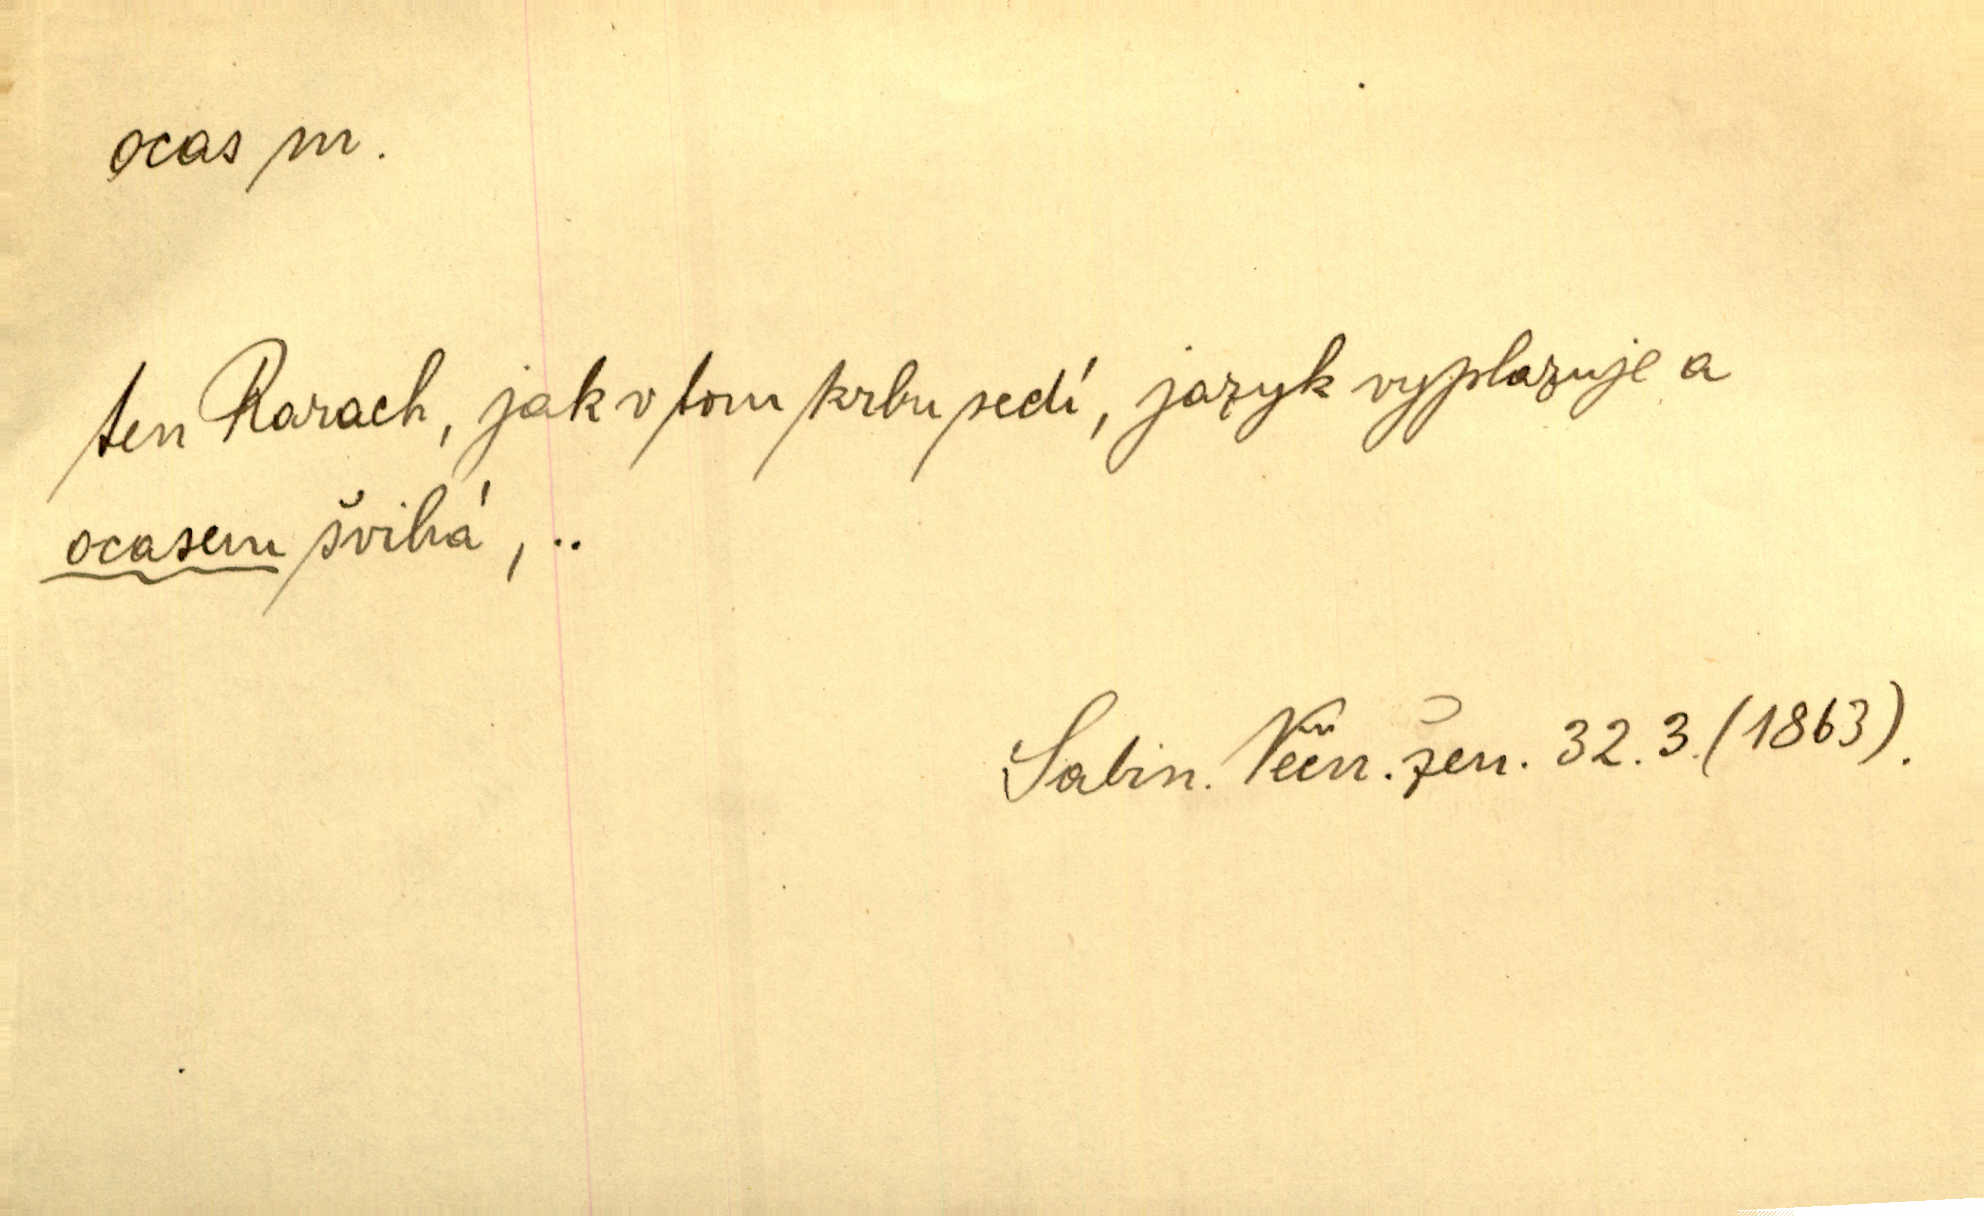 ocas m.
ten Rarach, jak v tom krbu sedí, jazyk vyplazuje a
ocasem švihá, ..
Sabin. Věčn. žen. 32.3.(1863).